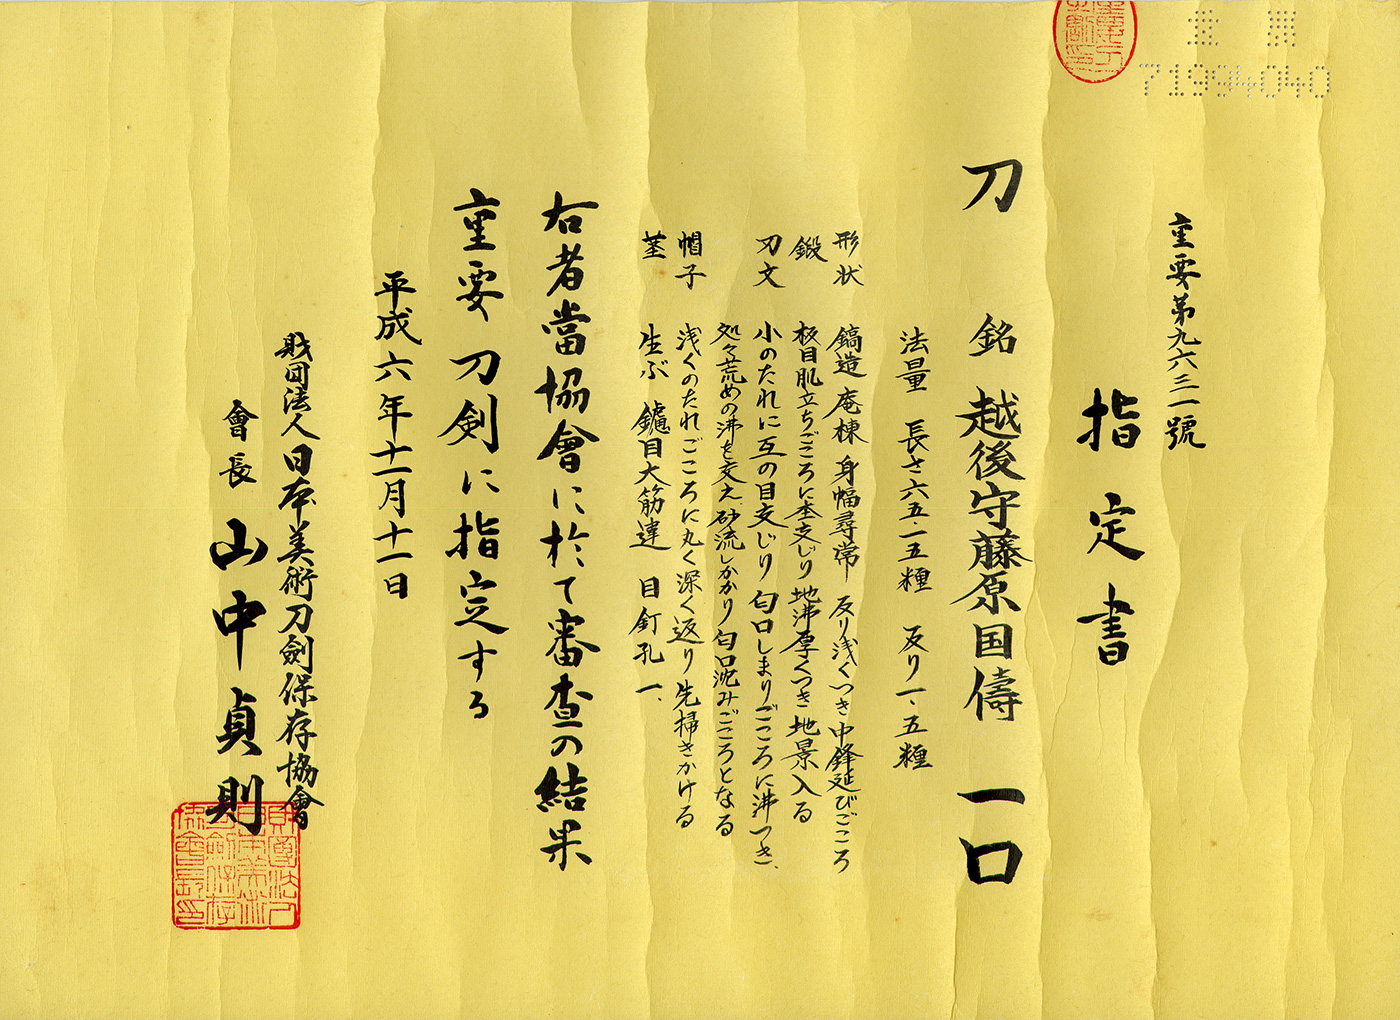 71994040
重要第九六三一號
指定書
刀 銘 越後守藤原国儔 一口
法量 長さ六五・一五糎 反り一・五糎
形状 鎬造 庵棟 身幅尋常 反り浅くつき 中鋒延びごころ
鍛 板目肌立ちごころに杢交じり 地沸厚くつき 地景入る
刃文 小のたれに互の目交じり 匂口しまりごころに沸つき、
処々荒めの沸を交え 砂流しかかり 匂口沈みごころとなる
帽子 浅くのたれごころに丸く深く返り 先掃きかける
茎 生ぶ 鑢目大筋違 目釘孔一、
右者當協會に於て審査の結果
重要刀剣に指定する
平成六年十一月十一日
財団法人日本美術刀劍保存協會
會長 山中貞則